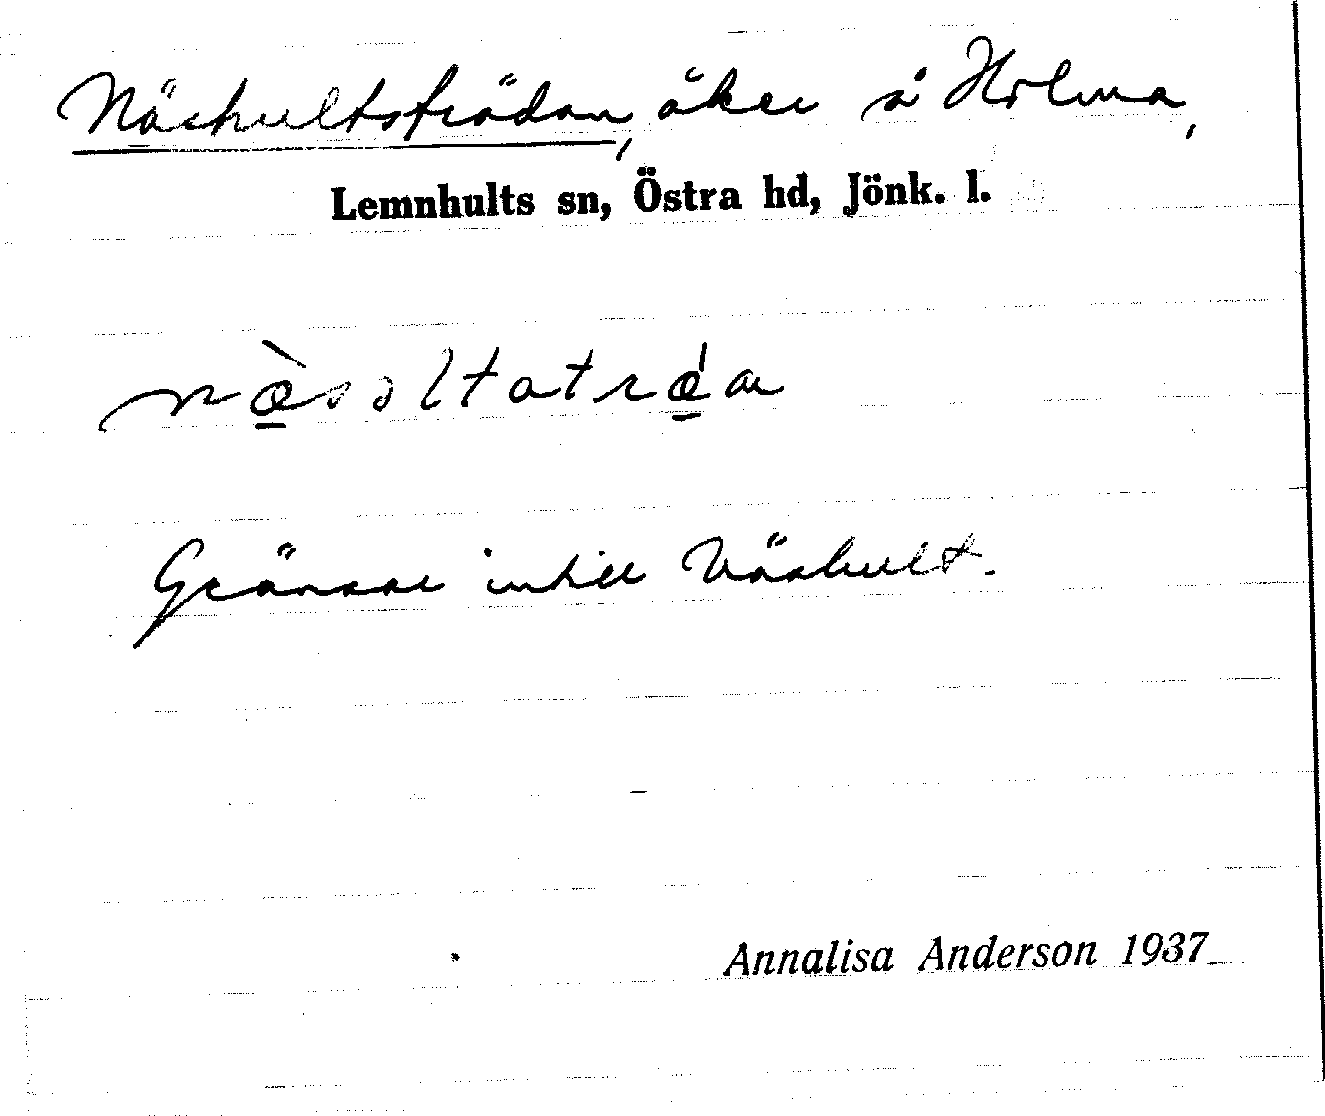 Näshultsträdan, åker å Holma,
Lemnhults sn, Östra hd, Jönk. l.
Gränsar intill Näshult.
Annalisa Anderson 1937